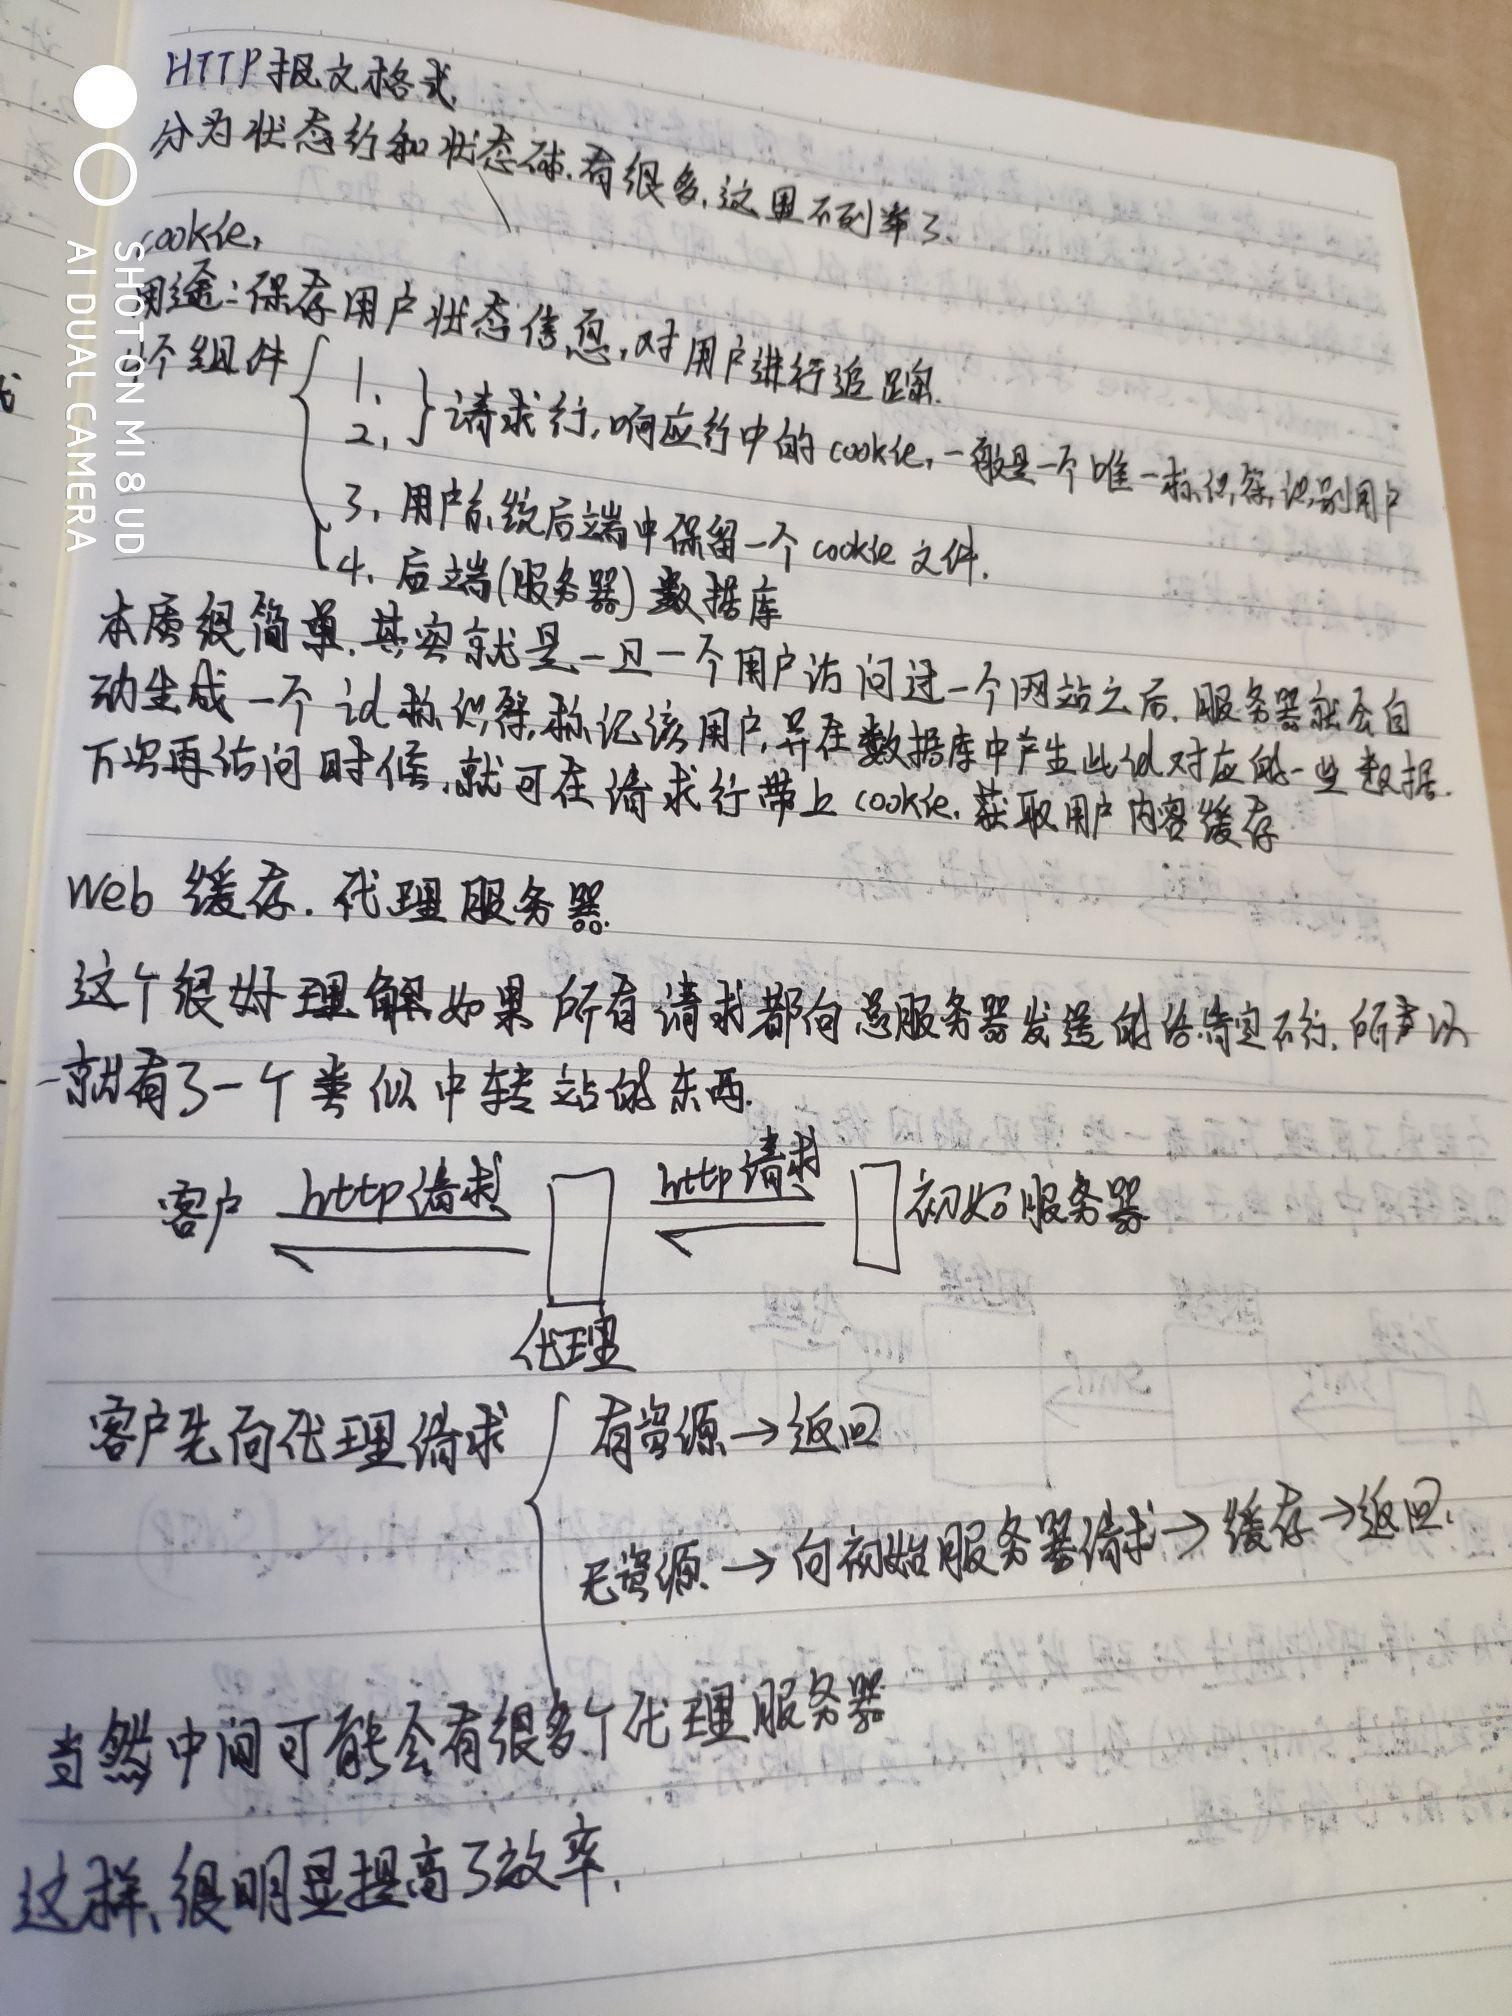 HTTP报文格式
分为状态行和状态码.有很多,这里不列举了.
cookie,
用途:保存用户状态信息,对用户进行追踪.
个组件
1.
2.
请求行,响应行中的cookie,一般是一个唯一标识符,识别用户
3.用户系统后端中保留一个cookie文件.
4.后端(服务器)数据库
本质很简单.其实就是一旦一个用户访问过一个网站之后.服务器就会自
动生成一个id标识符,标记该用户,并在数据库中产生此id对应的一些数据.
下次再访问时候,就可在请求行带上cookie.获取用户内容缓存
Web缓存.代理服务器.
这个很好理解如果所有请求都向总服务器发送的话肯定不行.所以
就有了一个类似中转站的东西.
客户 http请求 http请求 初始服务器
代理
客户先向代理请求
有资源→返回
无资源→向初始服务器请求→缓存→返回.
当然中间可能会有很多个代理服务器
这样,很明显提高了效率.
SHOT ON MI 8 UD
AI DUAL CAMERA